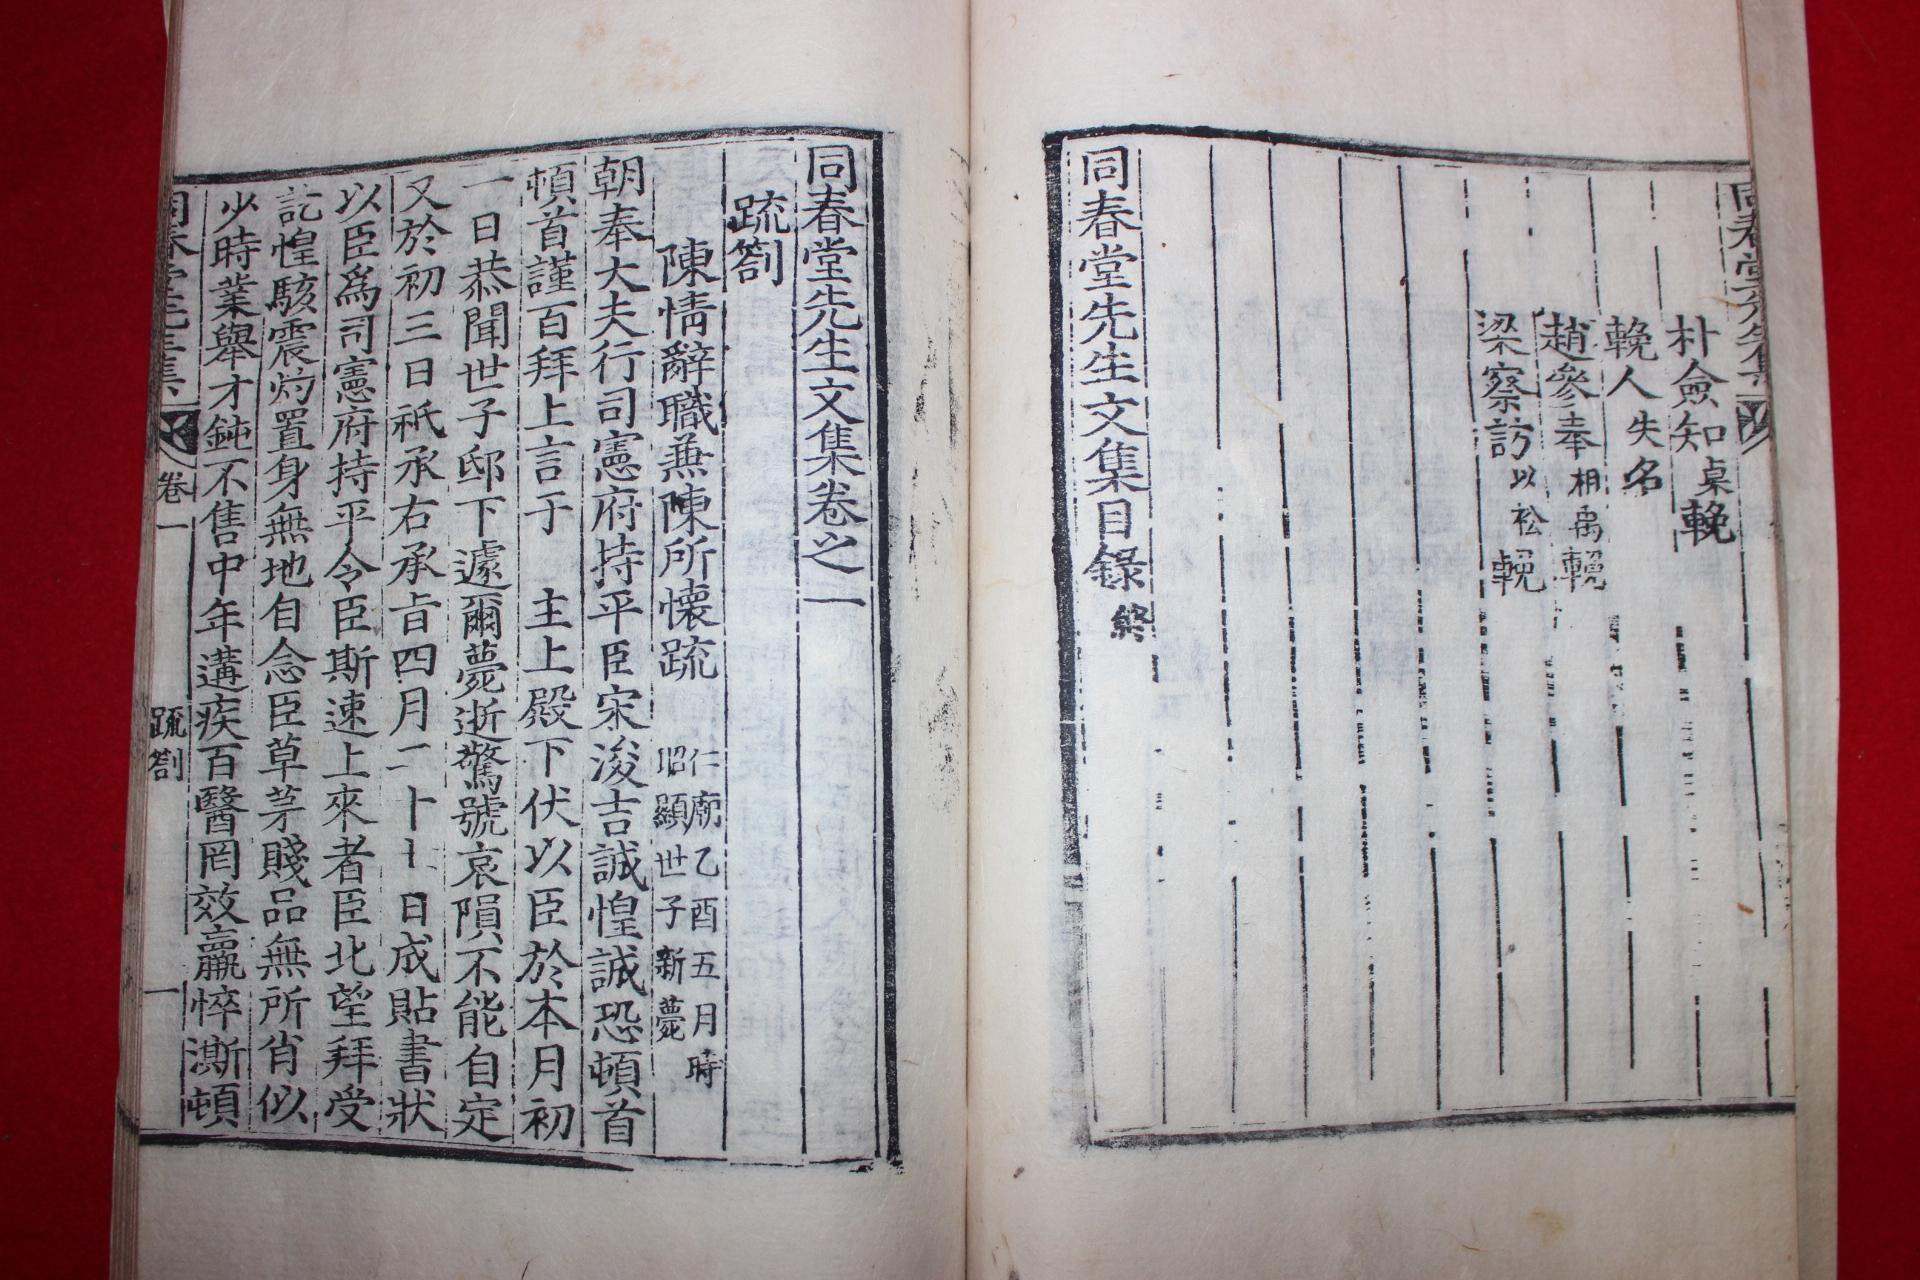 同春堂先生集
朴僉知㮈輓
輓人失名
趙參奉相禹輓
梁察訪以松輓
同春堂先生文集目錄終
同春堂先生文集卷之一
疏劄
陳情辭職兼陳所懷疏 仁廟乙酉五月時
昭顯世子新薨
朝奉大夫行司憲府持平臣宋浚吉誠惶誠恐頓首
頓首謹百拜上言于 主上殿下伏以臣於本月初
一日恭聞世子邸下遽爾薨逝驚號哀隕不能自定
又於初三日祇承右承旨四月二十 日成貼書狀
以臣爲司憲府持平令臣斯速上來者臣北望拜受
訖惶駭震灼置身無地自念臣草茅賤品無所肖似
少時業舉才鈍不售中年遘疾百醫罔效羸悴澌頓
同春堂先生集
卷一
疏劄
一